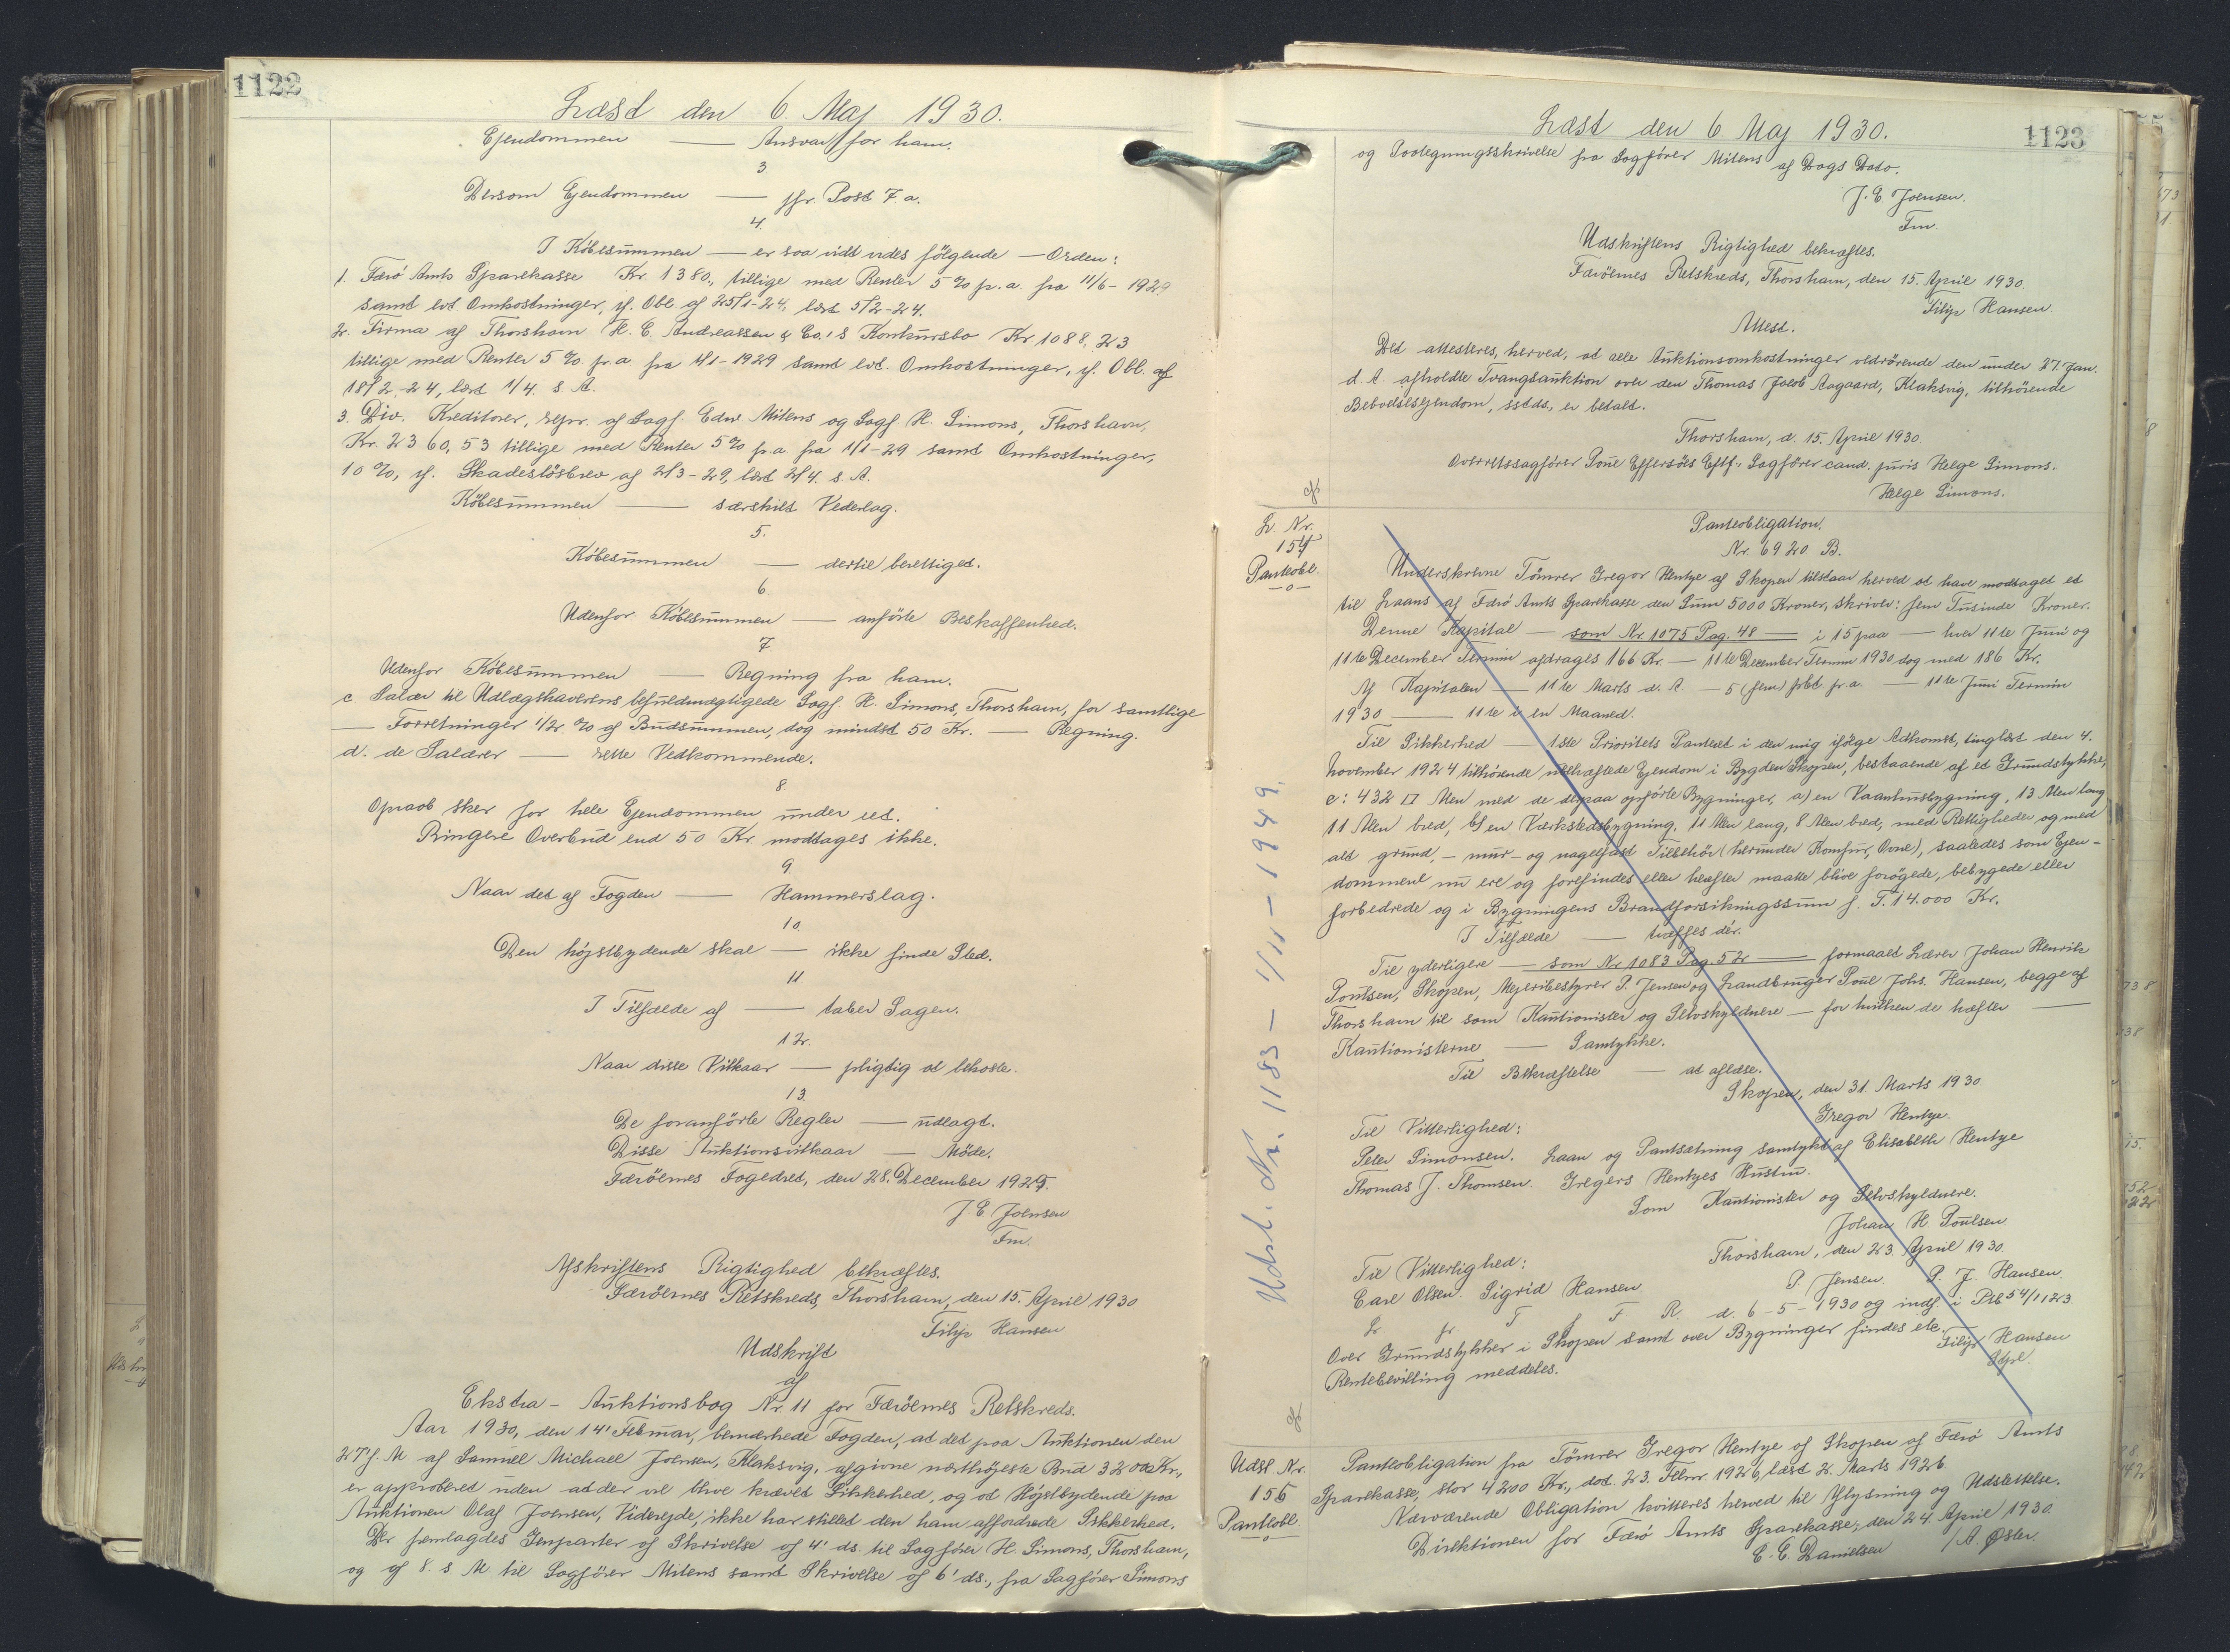 1122
Læst den 6. Maj 1930.
Ejendommen — Ansvar for ham.
3.
Dersom Ejendommen — jfr. Post 7 a.
4.
I Købesummen — er saa vidt vides følgende — Orden:
1. Færø Amts Sparekasse Kr. 1380., tillige med Renter 5 % p. a. fra 11/6 - 1929
samt evt. Omkostninger, jf. Obl. af 25/1-24, læst 5/2-24.
2. Firma af Thorshavn H. C. Andreassen & Co.'s Konkursbo Kr. 1088,23
tillige med Renter 5 % p. a. fra 4/1-1929 samt evt. Omkostninger, jf. Obl. af
18/2.-24, læst 1/4. s. A.
3. Div. Kreditorer, repr. af Sagf. Edw. Mitens og Sagf. H. Simons, Thorshavn,
Kr. 2360,53 tillige med Renter 5 % p. a. fra 1/1-29 samt Omkostninger,
10 %, jf. Skadesløsbrev af 2/3-29, læst 2/4. s. A.
Købesummen — særskilt Vederlag.
5.
Købesummen — dertil berettiget.
6.
Udenfor Købesummen — anførte Beskaffenhed.
7.
Udenfor Købesummen — Regning fra ham.
c. Salær til Udlægshaverens befuldmægtigede Sagf. H. Simons, Thorshavn, for samtlige
— Forretninger 1/2 % af Budsummen, dog mindst 50 Kr. — Regning.
d. de Salærer — rette Vedkommende.
8.
Opraab sker for hele Ejendommen under eet.
Ringere Overbud end 50 Kr. modtages ikke.
9.
Naar det af Fogden — Hammerslag.
10.
Den højstbydende skal — ikke finde Sted.
11
I Tilfælde af — taber Sagen.
12.
Naar disse Vilkaar — pligtig at bekoste.
13.
De foranførte Regler — udlagt.
Disse Auktionsvilkaar — Møde.
Færøernes Fogedret, den 28. December 1929.
J. E. Joensen
Fm.
Afskriftens Rigtighed bekræftes.
Færøernes Retskreds, Thorshavn, den 15. April 1930
Filip Hansen
Udskrift
af
Ekstra-Auktionsbog Nr. 11 for Færøernes Retskreds.
Aar 1930, den 14' Februar, bemærkede Fogden, at det paa Auktionen den
27' f. M. af Samuel Michael Joensen, Klaksvig, afgivne næsthøjeste Bud 3200 Kr.,
er approberet uden at der vil blive krævet Sikkerhed, og at Højstbydende paa
Auktionen Olaf Joensen, Viderejde, ikke har stillet den ham affordrede Sikkerhed.
Der fremlagdes Genparter af Skrivelse af 4' ds. til Sagfører H. Simons, Thorshavn,
og af 8. s. M. til Sagfører Mitens samt Skrivelse af 6' ds., fra Sagfører Simons
1123
Læst den 6. Maj 1930.
og Svarskrivelse fra Sagfører Mitens af Dags Dato.
J. E. Joensen.
Fm.
Udskriftens Rigtighed bekræftes.
Færøernes Retskreds, Thorshavn, den 15. April 1930.
Filip Hansen.
Attest.
Det attesteres, herved, at alle Auktionsomkostninger vedrørende den under 27. Jan.
d. A. afholdte Tvangsauktion over den Thomas Jacob Aagaard, Klaksvig, tilhørende
Beboelsesejendom, ssteds., er betalt.
Thorshavn, d. 15. April 1930.
Overretssagfører Poul Effersøes Eftf.: Sagfører cand. juris Helge Simons.
Helge Simons.
L. Nr.
154
Panteobl.
Panteobligation.
Nr. 6920. B.
Underskrevne Tømrer Gregor Hentze af Skopen tilstaar herved at have modtaget et
til Laans af Færø Amts Sparekasse den Sum 5000 Kroner, skriver: fem Tusinde Kroner.
Denne Kapital — som Nr. 1075 Pag. 48 — i 15 paa — hver 11te Juni og
11te December Termin afdrages 166 Kr. — 11te December Termin 1930 dog med 186 Kr.
Af Kapitalen — 11te Marts d. A. — 5 (fem) pCt. p. a. — 11te Juni Termin
1930 — 11te i en Maaned.
Til Sikkerhed — 1ste Prioritets Panteret i den mig ifølge Adkomst, tinglæst den 4.
November 1924 tilhørende ubehæftede Ejendom i Bygden Skopen, bestaaende af et Grundstykke,
c: 432 □ Alen med de derpaa opførte Bygninger, a) en Vaanhusbygning, 13 Alen lang
11 Alen bred, b) en Værkstedsbygning, 11 Alen lang, 8 Alen bred, med Rettigheder og med
alt grund, - mur- og nagelfast Tilbehør (herunder Komfur, Ovne), saaledes som Ejen-
dommene nu ere og forefindes eller herefter maatte blive forøgede, bebyggede eller
forbedrede og i Bygningens Brandforsikringssum p. T. 14.000 Kr.
I Tilfælde — træffes dér.
Til yderligere — som Nr. 1083 Pag. 52 — formaaet Lærer Johan Henrik
Poulsen, Skopen, Mejeribestyrer P. Jensen og Landbruger Poul Johs. Hansen, begge af
Thorshavn til som Kautionister og Selvskyldnere — for hvilken de hæfter —
Kautionisterne — Samtykke.
Til Bekræftelse — at aflæse.
Skopen, den 31. Marts 1930
Gregor Hentze.
Til Vitterlighed:
Peter Simonsen. Laan og Pantsætning samtykt af Elisabeth Hentze
Thomas J. Thomsen. Gregers Hentzes Hustru.
Som Kautionister og Selvskyldnere.
Johan H. Poulsen.
Thorshavn, den 23. April 1930.
Til Vitterlighed: P. Jensen. P. J. Hansen.
Carl Olsen. Sigrid Hansen
L fr. T f F R. d. 6-5-1930 og indf. i Ptb 54/1123
Over Grundstykker i Skopen samt over Bygninger findes etc. Filip Hansen
Rentebevilling meddeles.
Udsl. Nr. 1183 - 1/11 - 1949.
Udsl Nr.
155
Panteobl.
Panteobligation fra Tømrer Gregor Hentze af Skopen af Færø Amts
Sparekasse, stor 4200 Kr., dat. 23. Febr. 1926, læst 2. Marts 1926
Nærværende Obligation kvitteres herved til Aflysning og Udslettelse.
Direktionen for Færø Amts Sparekasse, den 24. April 1930.
C. C. Danielsen / A. Øster.